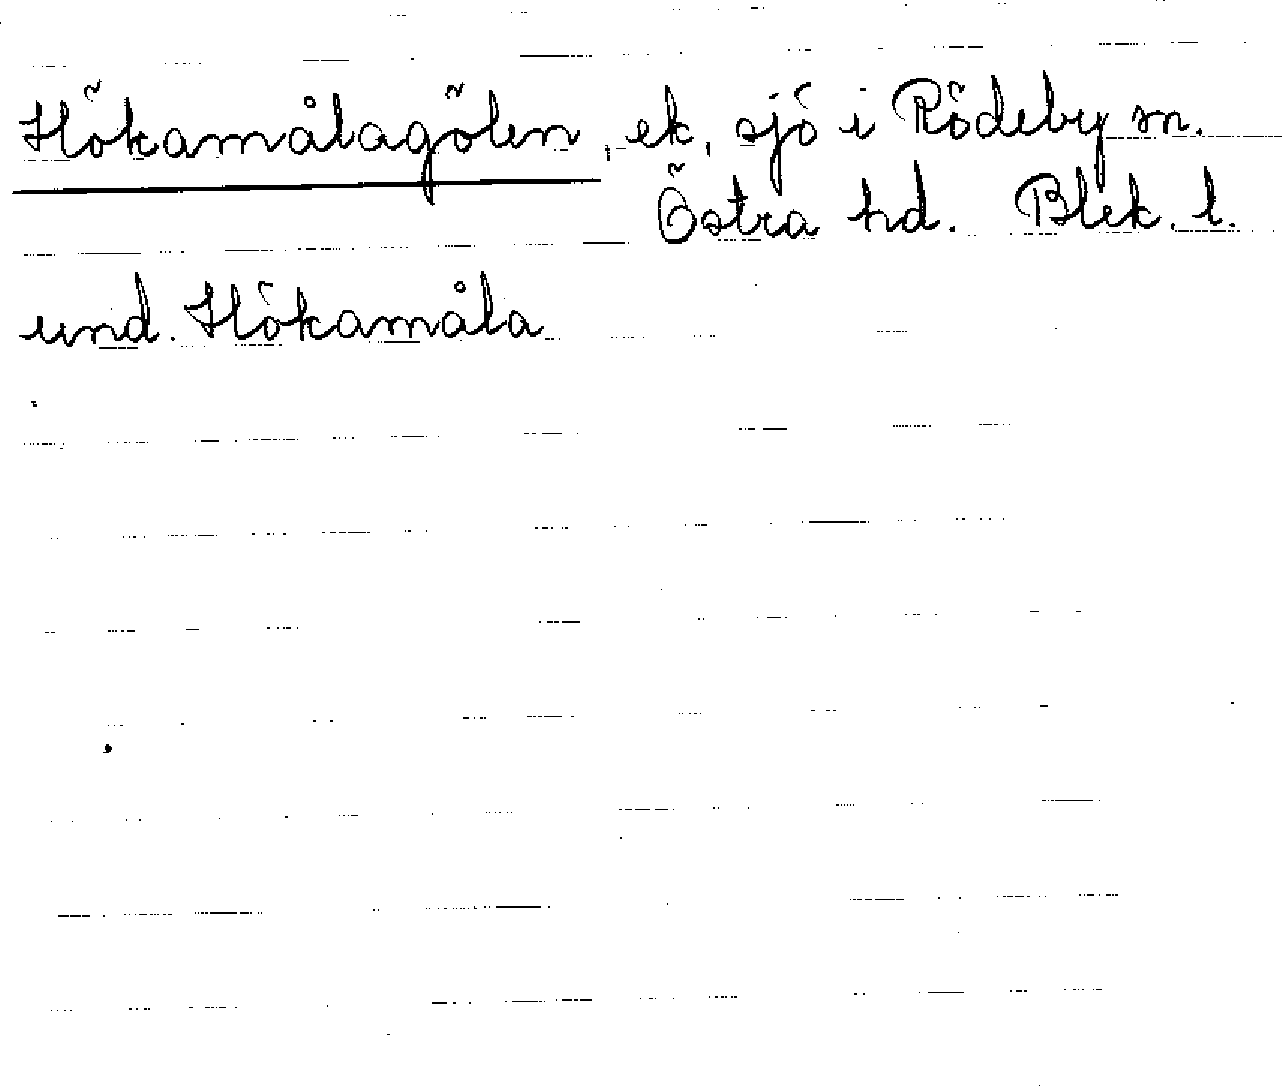 Hökamålagölen, ek, sjö i Rödeby sn.
Östra hd. Blek. l.
und. Hökamåla